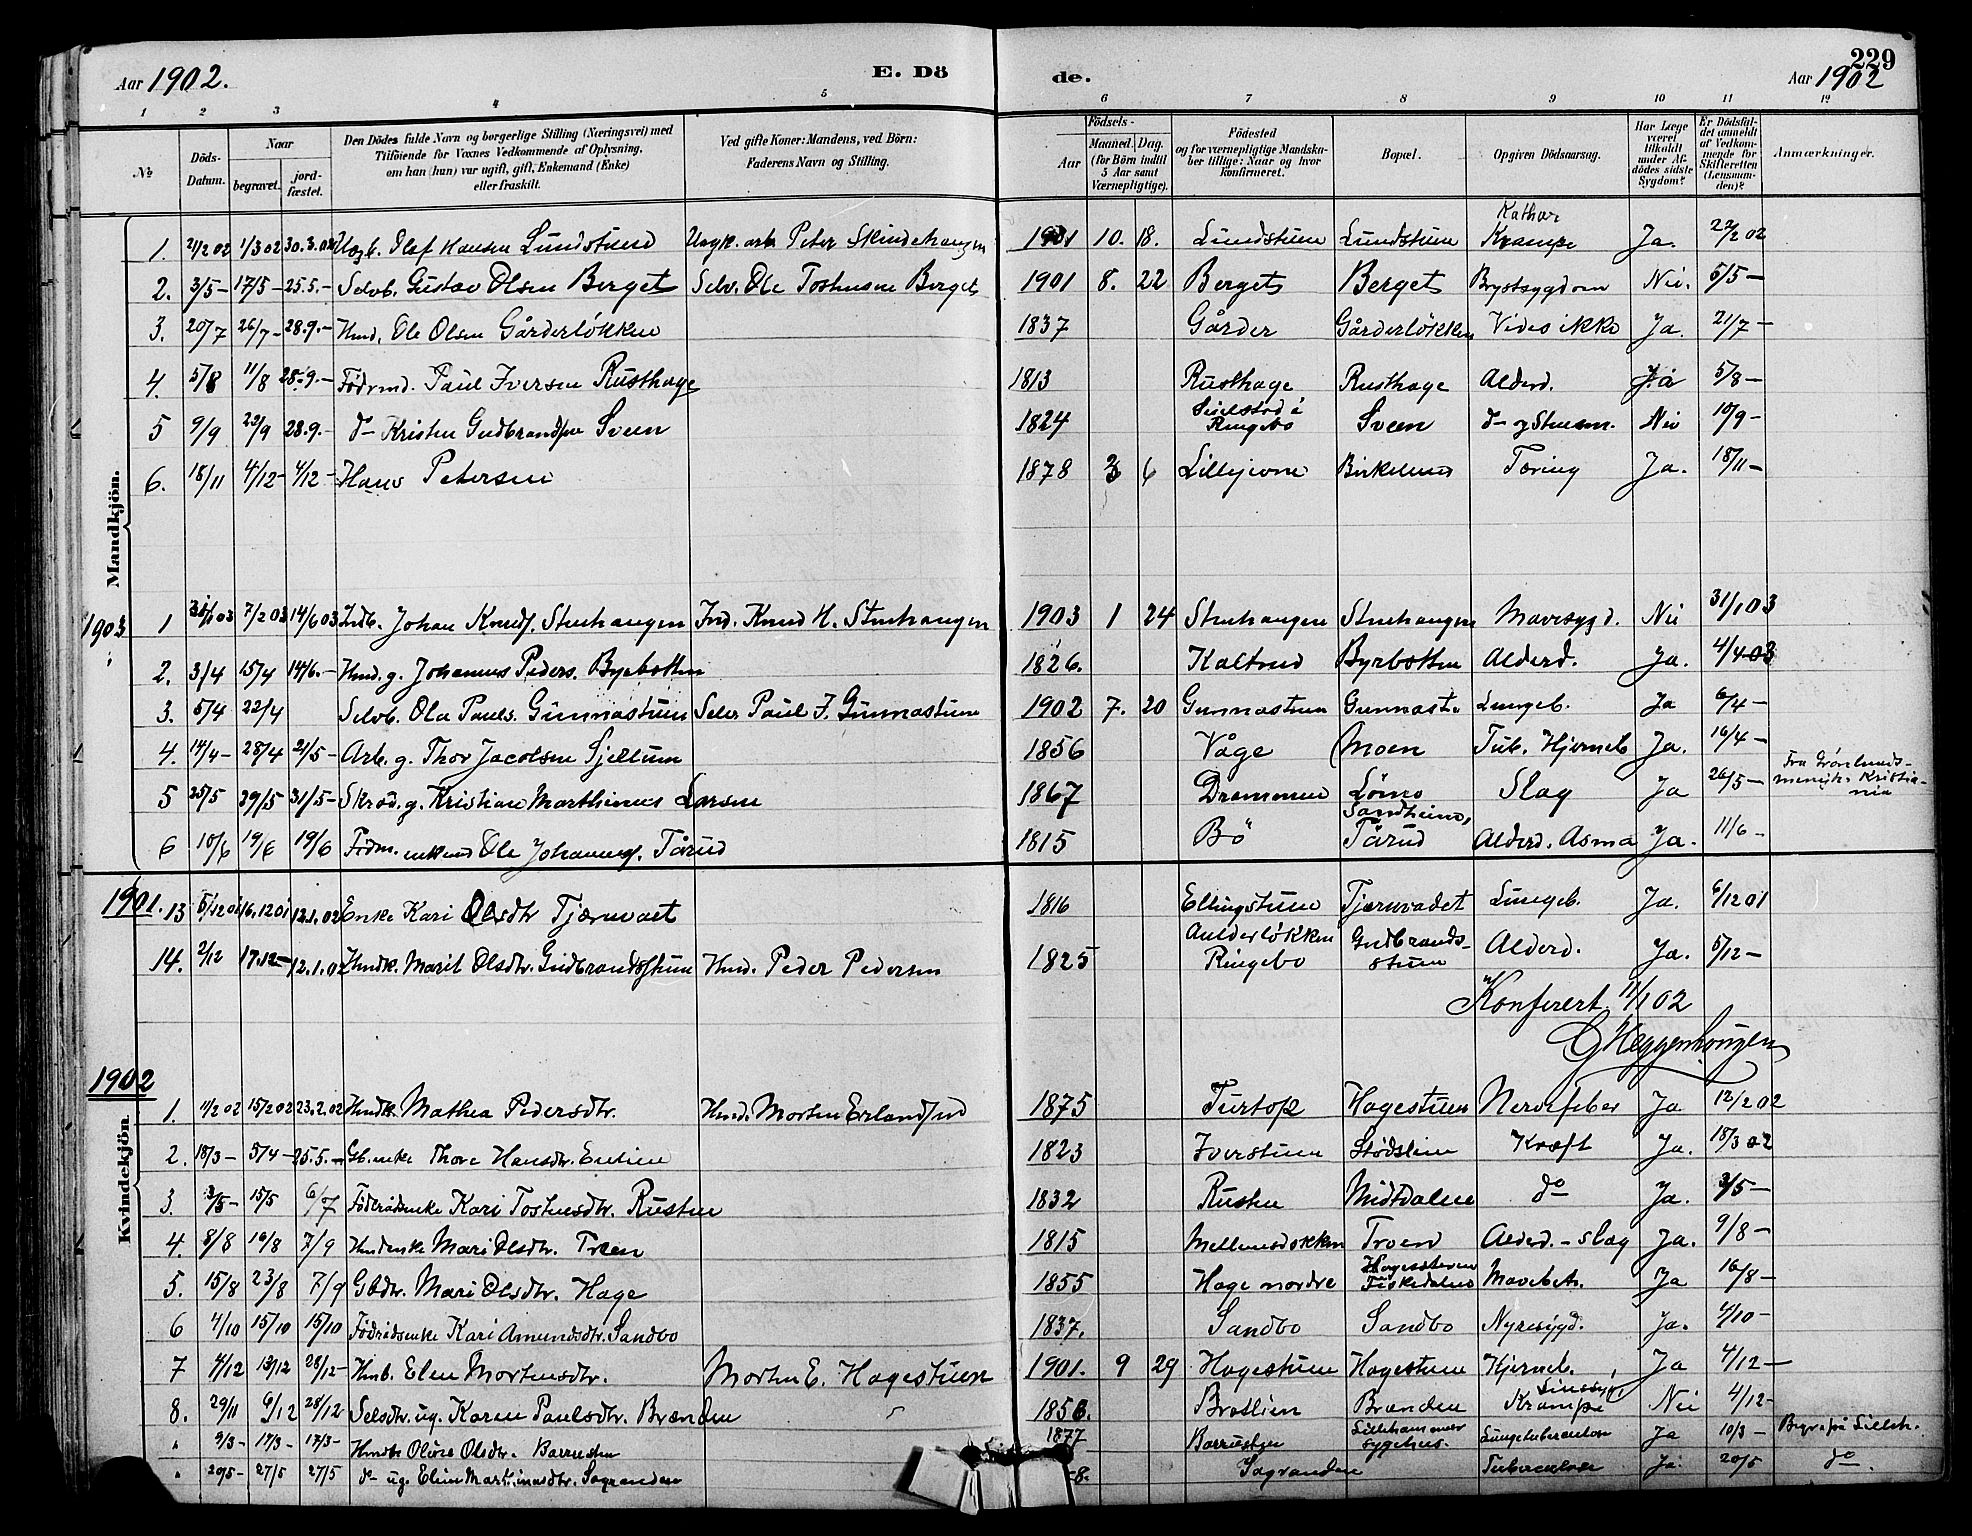 229
Aar 1902. E. Dö de. Aar 1902
1 2 3 4 5 6 7 8 9 10 11 12
№
Döds-Datum.
Naar
begravet.
jord-fæstet.
Den Dödes fulde Navn og borgerlige Stilling (Næringsvei) med
Tilföiende for Voxnes Vedkommende af Oplysning,
om han (hun) var ugift, gift, Enkemand (Enke)
eller fraskilt.
Ved gifte Koner: Mandens, ved Börn:
Faderens Navn og Stilling.
Födsels-
Aar
Maaned. Dag.
(for Börn indtil
5 Aar samt
Værnepligtige).
Födested
og for værnepligtige Mandska-
ber tillige: Naar og hvor
konfirmeret.
Bopæl.
Opgiven Dödsaarsag.
Har Læge
været
tilkaldt
under Af-
dödes sidste
Sygdom?
Er Dödsfal-
det anmeldt
af Vedkom-
mende for
Skifteretten
(Lensman-
den)?
Anmærkninger.
Mandkjön.
1. 21/2 02 1/3 02 30.3.02 Olaf Hansen Lundstuen Peter 1901 10. 18. Lundstuen Lundstuen Kathar Krampe Ja. 22/2 02
2. 3/5 - 17/5 - 25.5. - Selvb. Gustav Olsen Berget Selv. Ole Tostensen Berget 1901 8. 22 Berget Berget Brystsygdom Nei. 5/5 -
3. 20/7 26/7 - 28.9. - Hmd. Ole Olsen Gårderløkken 1837 Gårder Gårderløkken Vides ikke Ja. 21/7 -
4. 5/8 11/8 28.9. - Födrmd. Paul Iversen Rusthage 1813 Rusthage Rusthage Alderd. Ja 5/8 -
5 9/9 23/9 28.9. - d- Kristen Gudbrandsen Sveen 1824 Ringebo Sveen Nei 10/9 -
6. 18/11 4/12 - 4/12 - Hans Petersen 1878 3 6 Tæring Ja. 18/11 -
1903
1 30/1 03 7/2 03 14/6 03 Indb. Johan Knuds. Stenhaugen Ind. Knud H. Stenhaugen 1903 1 24 Stenhaugen Stenhaugen Mavesygd. Nei 31/1 03
2. 3/4 15/4 14/6. - Hmd. g. Johannes Peders. Byrbotten 1826. Kaltrud Byrbotten Alderd. Ja. 4/4 03
3. 5/4 22/4 Selvb. Ola Pauls. Gunnastuen Selv Paul J. Gunnastuen 1902 7. 20 Gunnastuen Gunnast. Lungeb. Ja 6/4 -
4. 14/4 - 28/4 21/5 - Arb. g. Thor Jacobsen Sjellum 1856 Våge Moen Tub. Hjerneb Ja. 16/4 -
5 25/5 29/5 31/5 - Skræd. g. Kristian Marthinus Larsen 1867 Drammen Lømo Sandheim, Slag Ja 26/5 - Fra Grønlands-menigh. Kristia-nia
6 10/6 19/6 19/6 Födm. enkemd Ole Johannes. Tårud 1815 Bö Tårud Alderd. Asma Ja. 11/6 -
1901. 13 5/12 01 16.12 01 12.1.02 Enke Kari Olsdtr Tjærnvaet 1816 Ellingstuen Tjernvadet Lungeb. Ja. 6/12 01
14. 2/12 17.12 - 12.1.02 Hmdk. Marit Olsdtr. Gudbrandsstuen Hmd. Peder Pedersen 1825 Ringebo Gudbrands-stuen Alderd. Ja. 5/12 -
Konferert 11/1 02
G Heggenhougen
1902
Kvindekjön
1. 11/2 02 15/2 02 23.2.02 Hmdk. Mathea Pedersdtr. Hmd. Morten Erlandsen 1875 Turtop Hagestuen Nervefeber Ja 12/2 02
2. 18/3 - 5/4 - 25.5. - Gb. enke Thore Hansdtr. 1823 Iverstuen Stødslien Kræft Ja. 18/3 02
3. 3/5 - 15/5 6/7 Födrådsenke Kari Tostensdtr. Rusten 1832 Rusten Midtdalen do Ja. 3/5 -
4. 8/8 16/8 7/9 Hmdenke Mari Olsdtr. Troen 1815 Mellemsdokken Troen Alderd. - slag Ja. 9/8 -
5. 15/8 23/8 7/9 Gbdtr. Mari Olsdtr. Hage 1855 Hage nordre Hagesæteren Fiskedalen Mavebet. Ja 16/8 -
6 4/10 15/10 15/10 Födrådsenke Kari Amundsdtr. Sandbo 1837. Sandbo Sandbo Nyresygd. Ja. 4/10 -
7 4/12 13/12 28/12 - Hmb. Elen Mortensdtr. Morten E. Hagestuen 1901. 9 29 Hagestuen Hagestuen Hjerneb. Ja 4/12 -
8. 29/11 9/12 28/12 Selsdtr. ug. Karen Paulsdtr. Brænden 1856. Bratlien Brænden Sinssyg, Krampe Nei 4/12 -
" 9/3 - 17/3 - 17/3 - Hmdtr Olive Olsdtr. Barrusten 1877 Barrusten Lillehammer sygehus. Lungetuberculose Ja 10/3 - Begr. på Lilleh.
" 20/5 - 27/5 27/5 d- ug. Elen Martinusdtr. Sagranden -8. Sagranden Tuberculose Ja. 20/5 do.